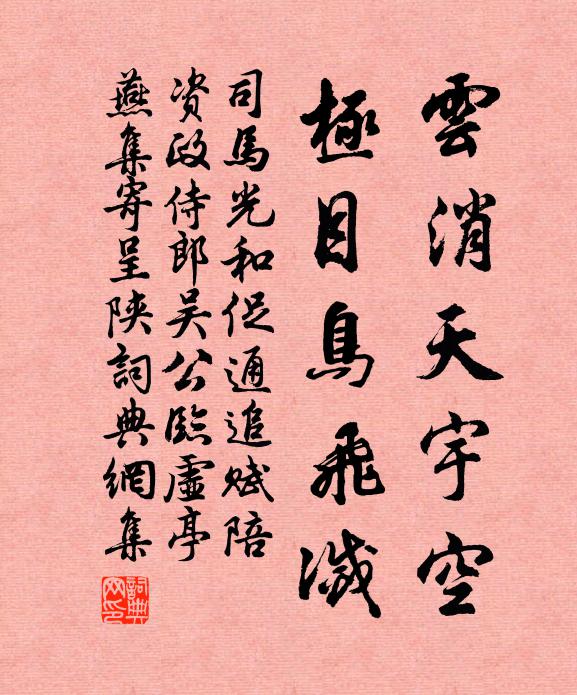 雲消天宇空
極目鳥飛滅
司馬光和促通追賦陪
资政侍郎吴公臨虛亭
燕集寄呈陝詞典網集
詞典网印